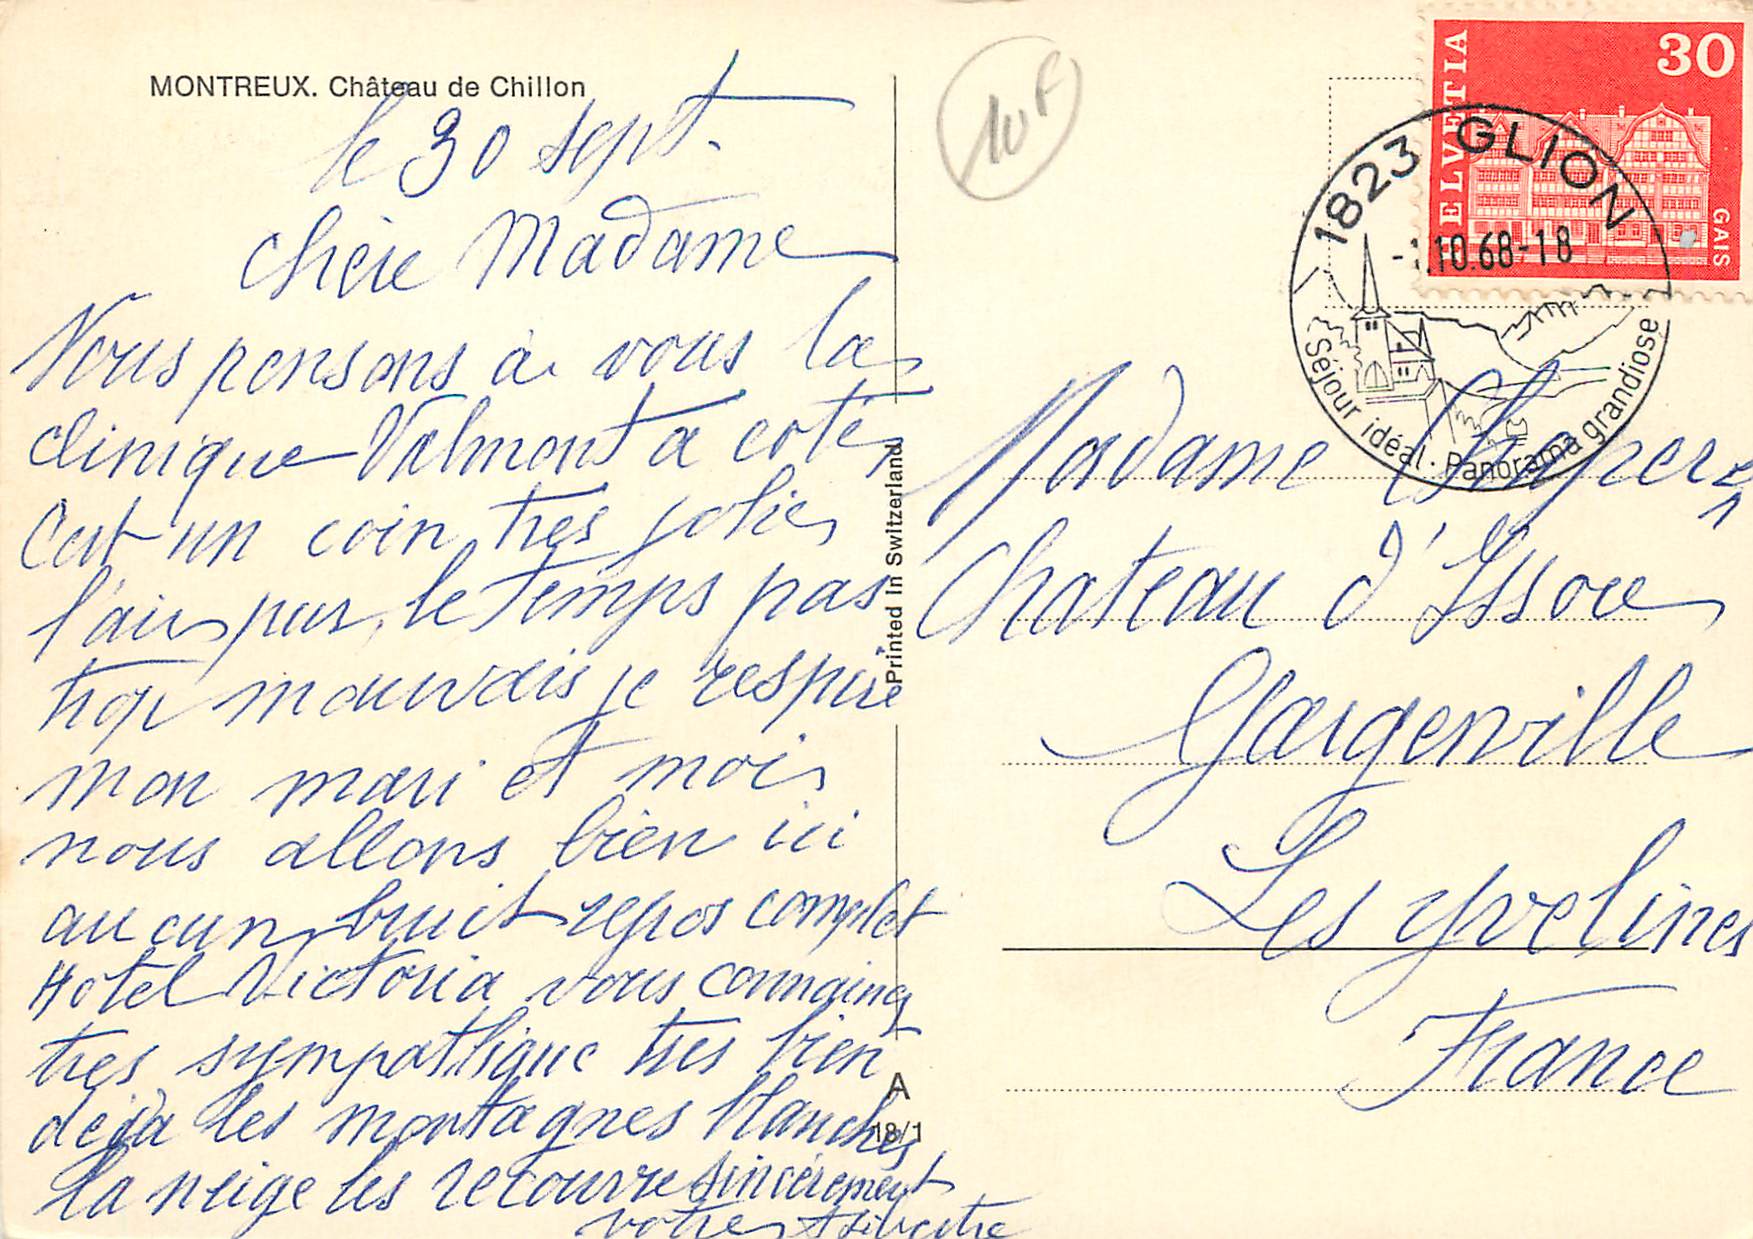 MONTREUX. Château de Chillon
le 30 sept.
Chère Madame
Nous pensons à vous la
clinique Valmont a coté
Cest un coin tres jolie
l'air pur, le temps pas
trop mauvais je respire
mon mari et moi
nous allons bien ici
aucun bruit repos complet
Hotel Victoria vous connainez
tres sympathique tres bien
dejà les montagnes blanches
la neige les recouvre sincérement
votre
Printed in Switzerland
A
18/1
10F
HELVETIA
30
GAIS
1823 GLION
-1.10.68-18
Séjour idéal · Panorama grandiose
Madame
Chateau d'Issou
Gargenville
Les Yvelines
France